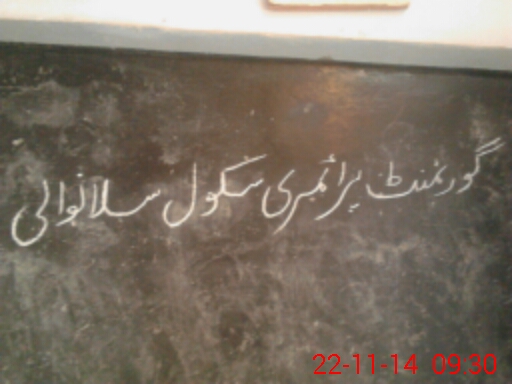 گورنمنٹ پرائمری سکول سلانوالی
22-11-14 09:30